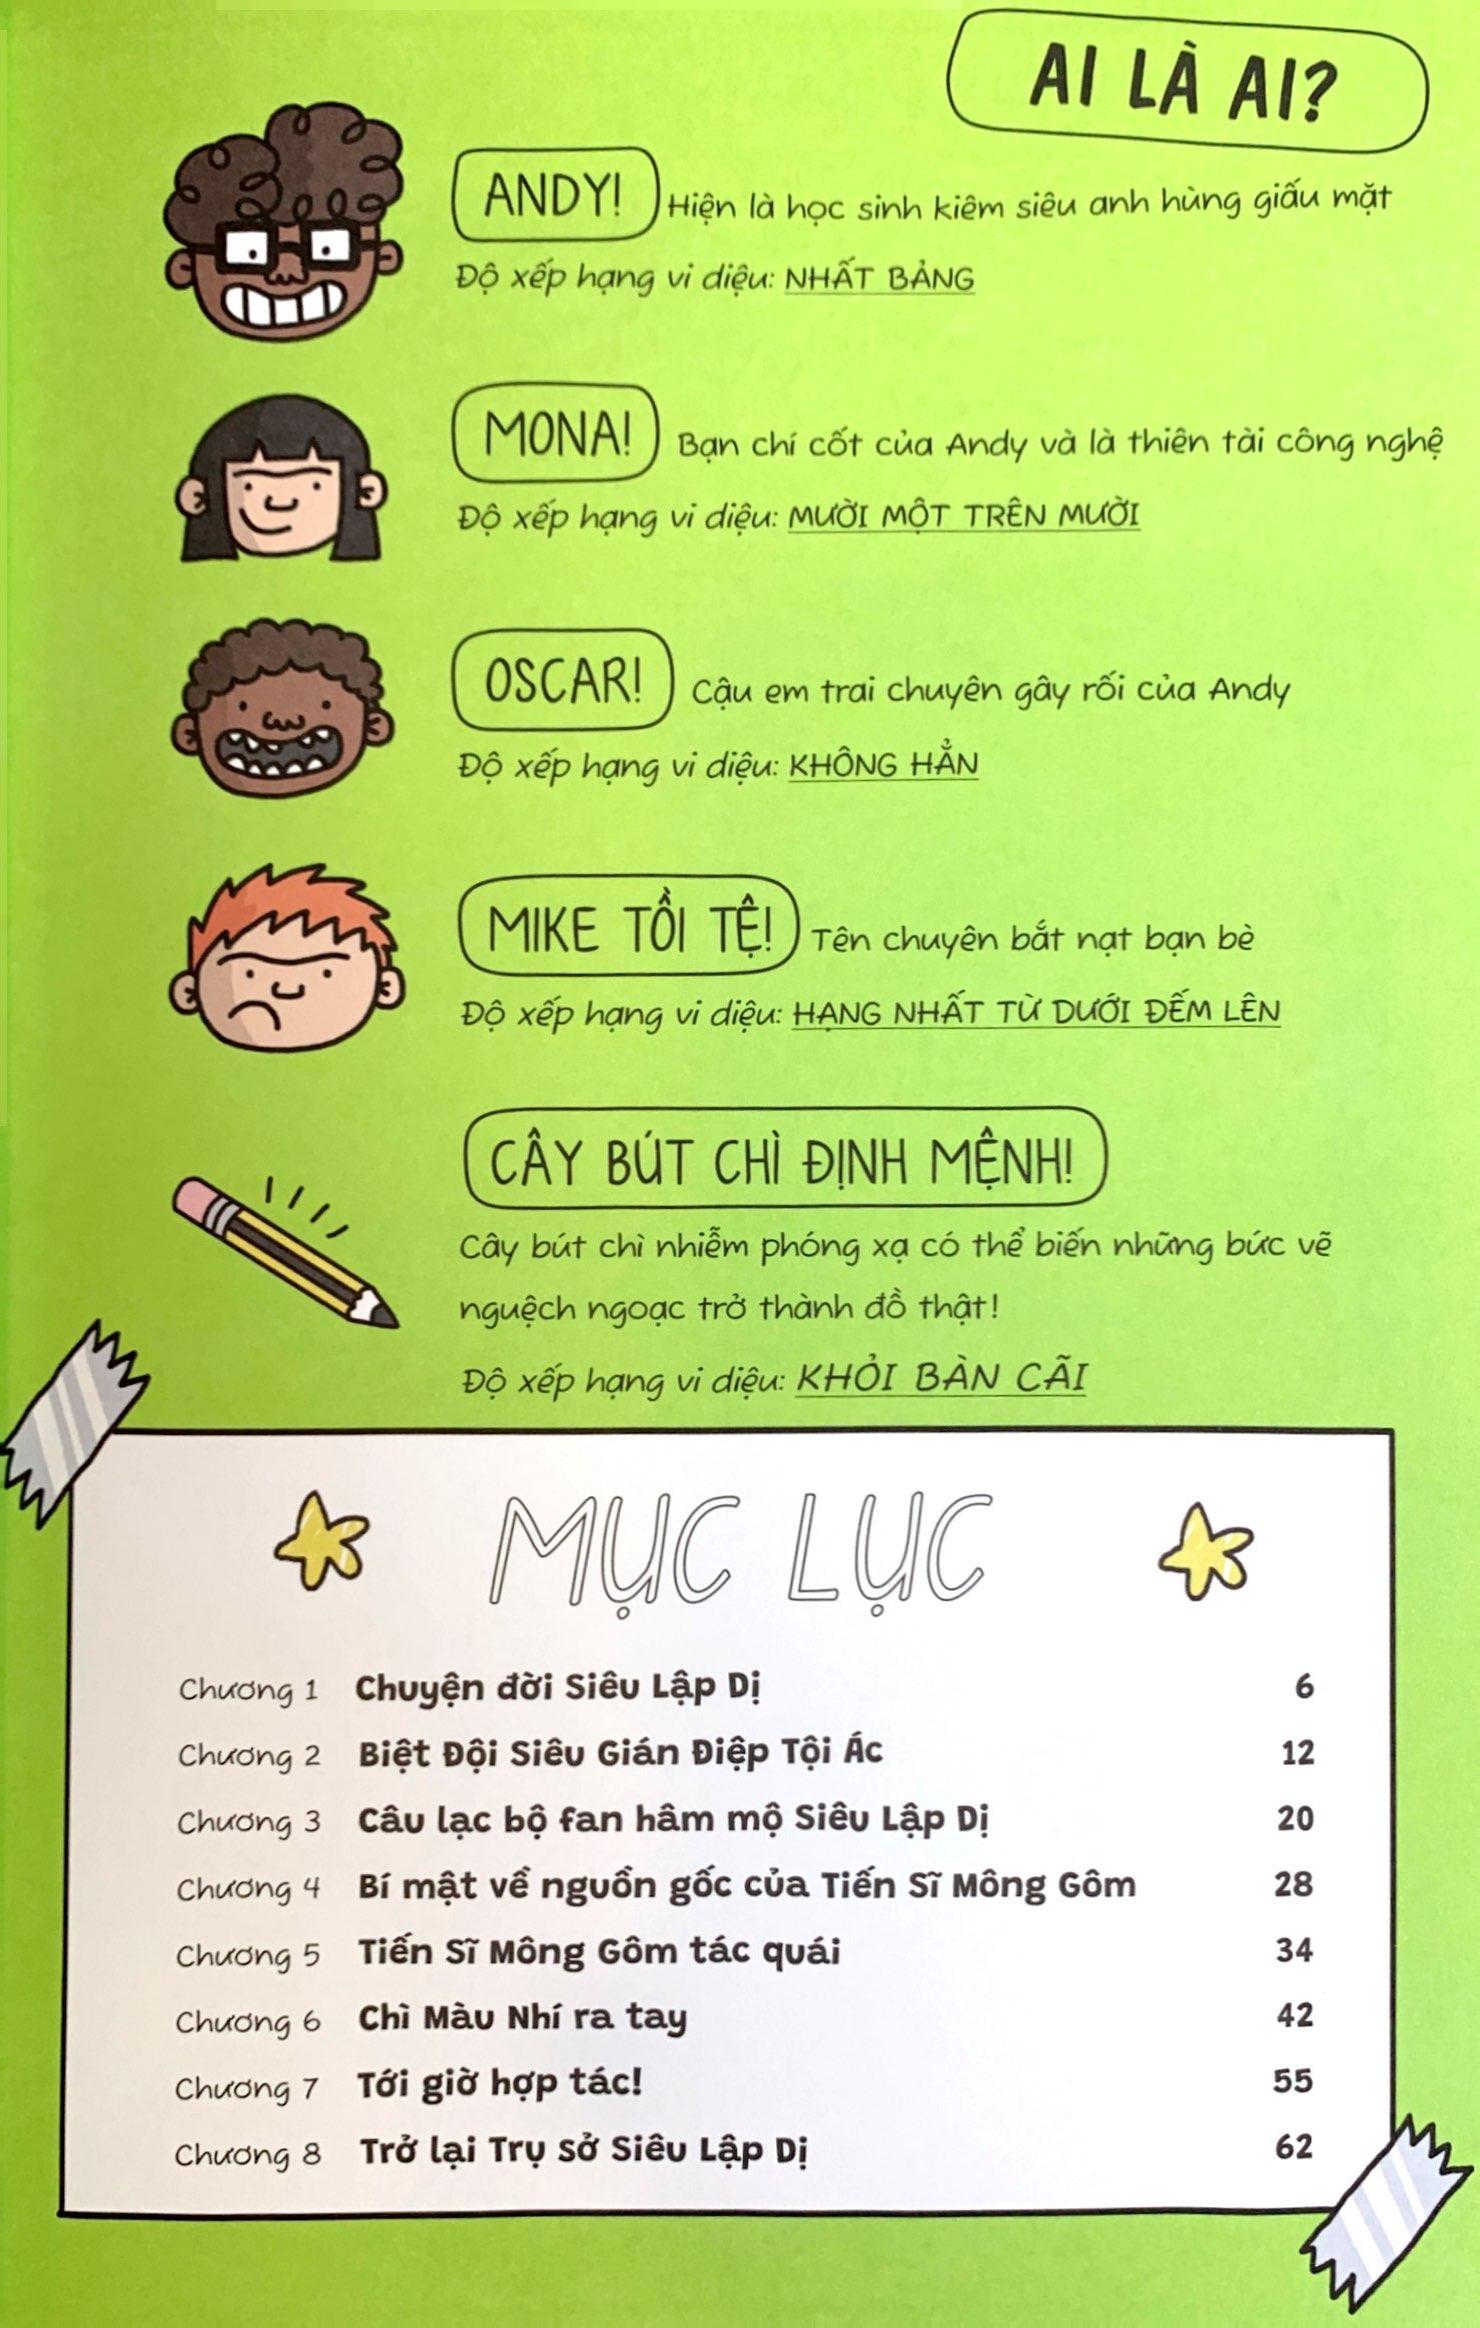 AI LÀ AI?
ANDY! Hiện là học sinh kiêm siêu anh hùng giấu mặt
Độ xếp hạng vi diệu: NHẤT BẢNG
MONA! Bạn chí cốt của Andy và là thiên tài công nghệ
Độ xếp hạng vi diệu: MƯỜI MỘT TRÊN MƯỜI
OSCAR! Cậu em trai chuyên gây rối của Andy
Độ xếp hạng vi diệu: KHÔNG HẲN
MIKE TỒI TỆ! Tên chuyên bắt nạt bạn bè
Độ xếp hạng vi diệu: HẠNG NHẤT TỪ DƯỚI ĐẾM LÊN
CÂY BÚT CHÌ ĐỊNH MỆNH!
Cây bút chì nhiễm phóng xạ có thể biến những bức vẽ
nguệch ngoạc trở thành đồ thật!
Độ xếp hạng vi diệu: KHỎI BÀN CÃI
MỤC LỤC
Chương 1 Chuyện đời Siêu Lập Dị 6
Chương 2 Biệt Đội Siêu Gián Điệp Tội Ác 12
Chương 3 Câu lạc bộ fan hâm mộ Siêu Lập Dị 20
Chương 4 Bí mật về nguồn gốc của Tiến Sĩ Mông Gôm 28
Chương 5 Tiến Sĩ Mông Gôm tác quái 34
Chương 6 Chì Màu Nhí ra tay 42
Chương 7 Tới giờ hợp tác! 55
Chương 8 Trở lại Trụ sở Siêu Lập Dị 62